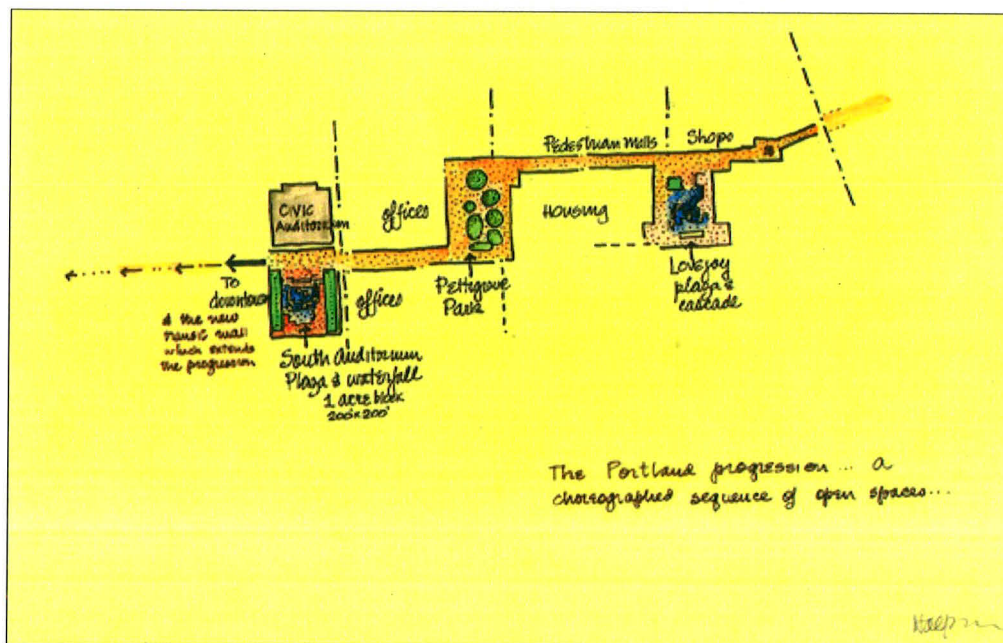 Pedestrian Malls
Shops
CIVIC
Auditorium
offices
HOUSING
TO
downtown
& the new
transit mall
which extends
the progression
offices
Pettigrove
Park
Lovejoy
plaza &
cascade
South Auditorium
Plaza & waterfall
1 acre block
200'x200'
The Portland progression... a
choreographed sequence of open spaces...